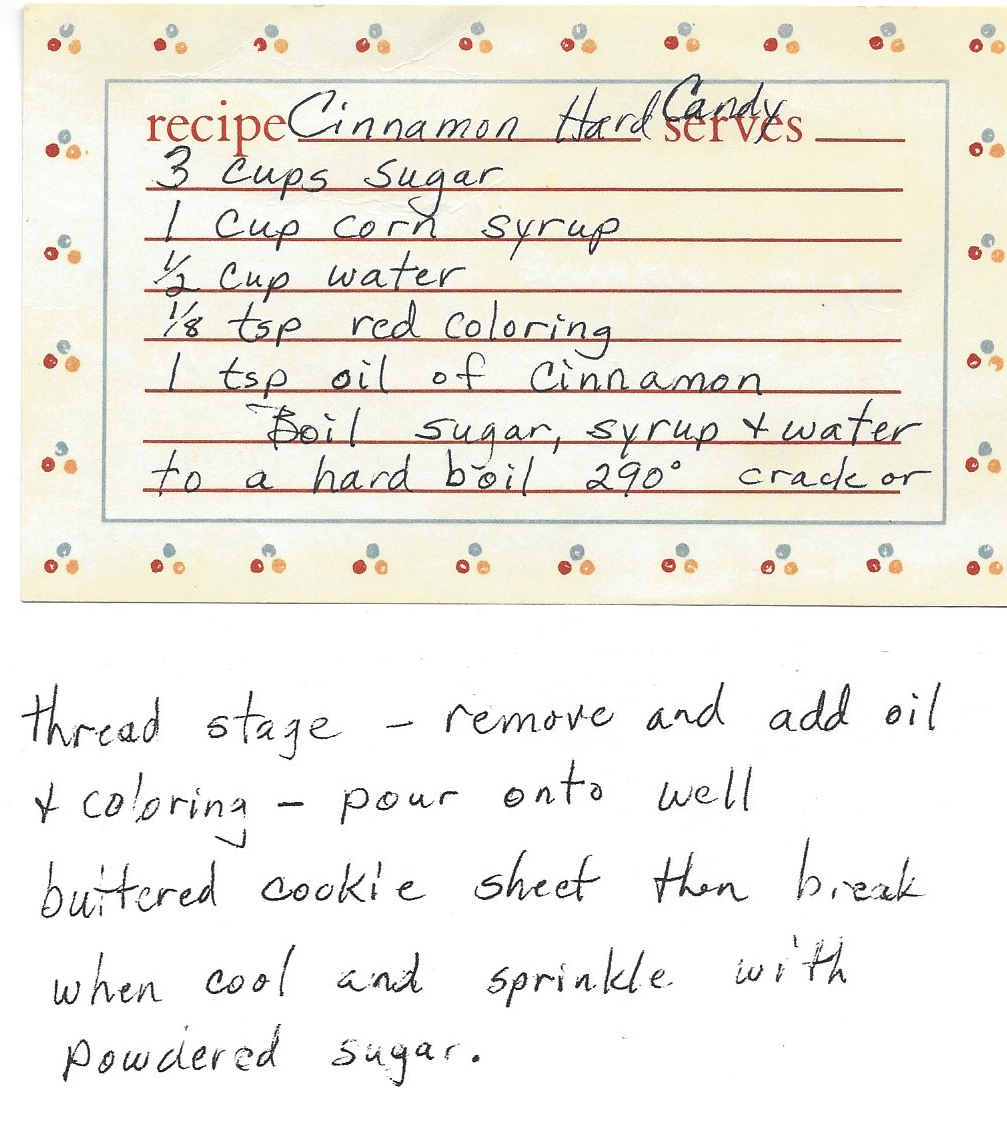 recipe Cinnamon Hard Candy serves
3 cups sugar
1 cup corn syrup
1/2 cup water
1/8 tsp red coloring
1 tsp oil of cinnamon
Boil sugar, syrup + water
to a hard boil 290° crack or
thread stage - remove and add oil
+ coloring - pour onto well
buttered cookie sheet then break
when cool and sprinkle with
powdered sugar.